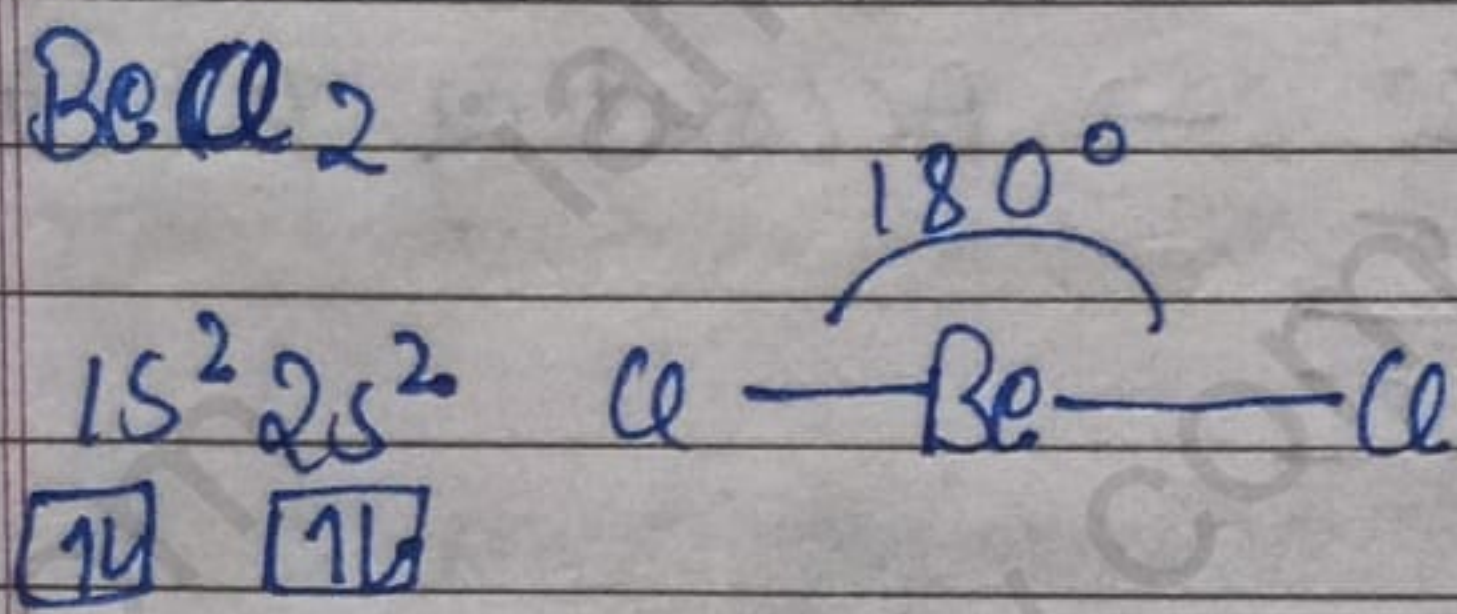 BeCl₂
180°
1s² 2s² Cl — Be — Cl
1L 1L